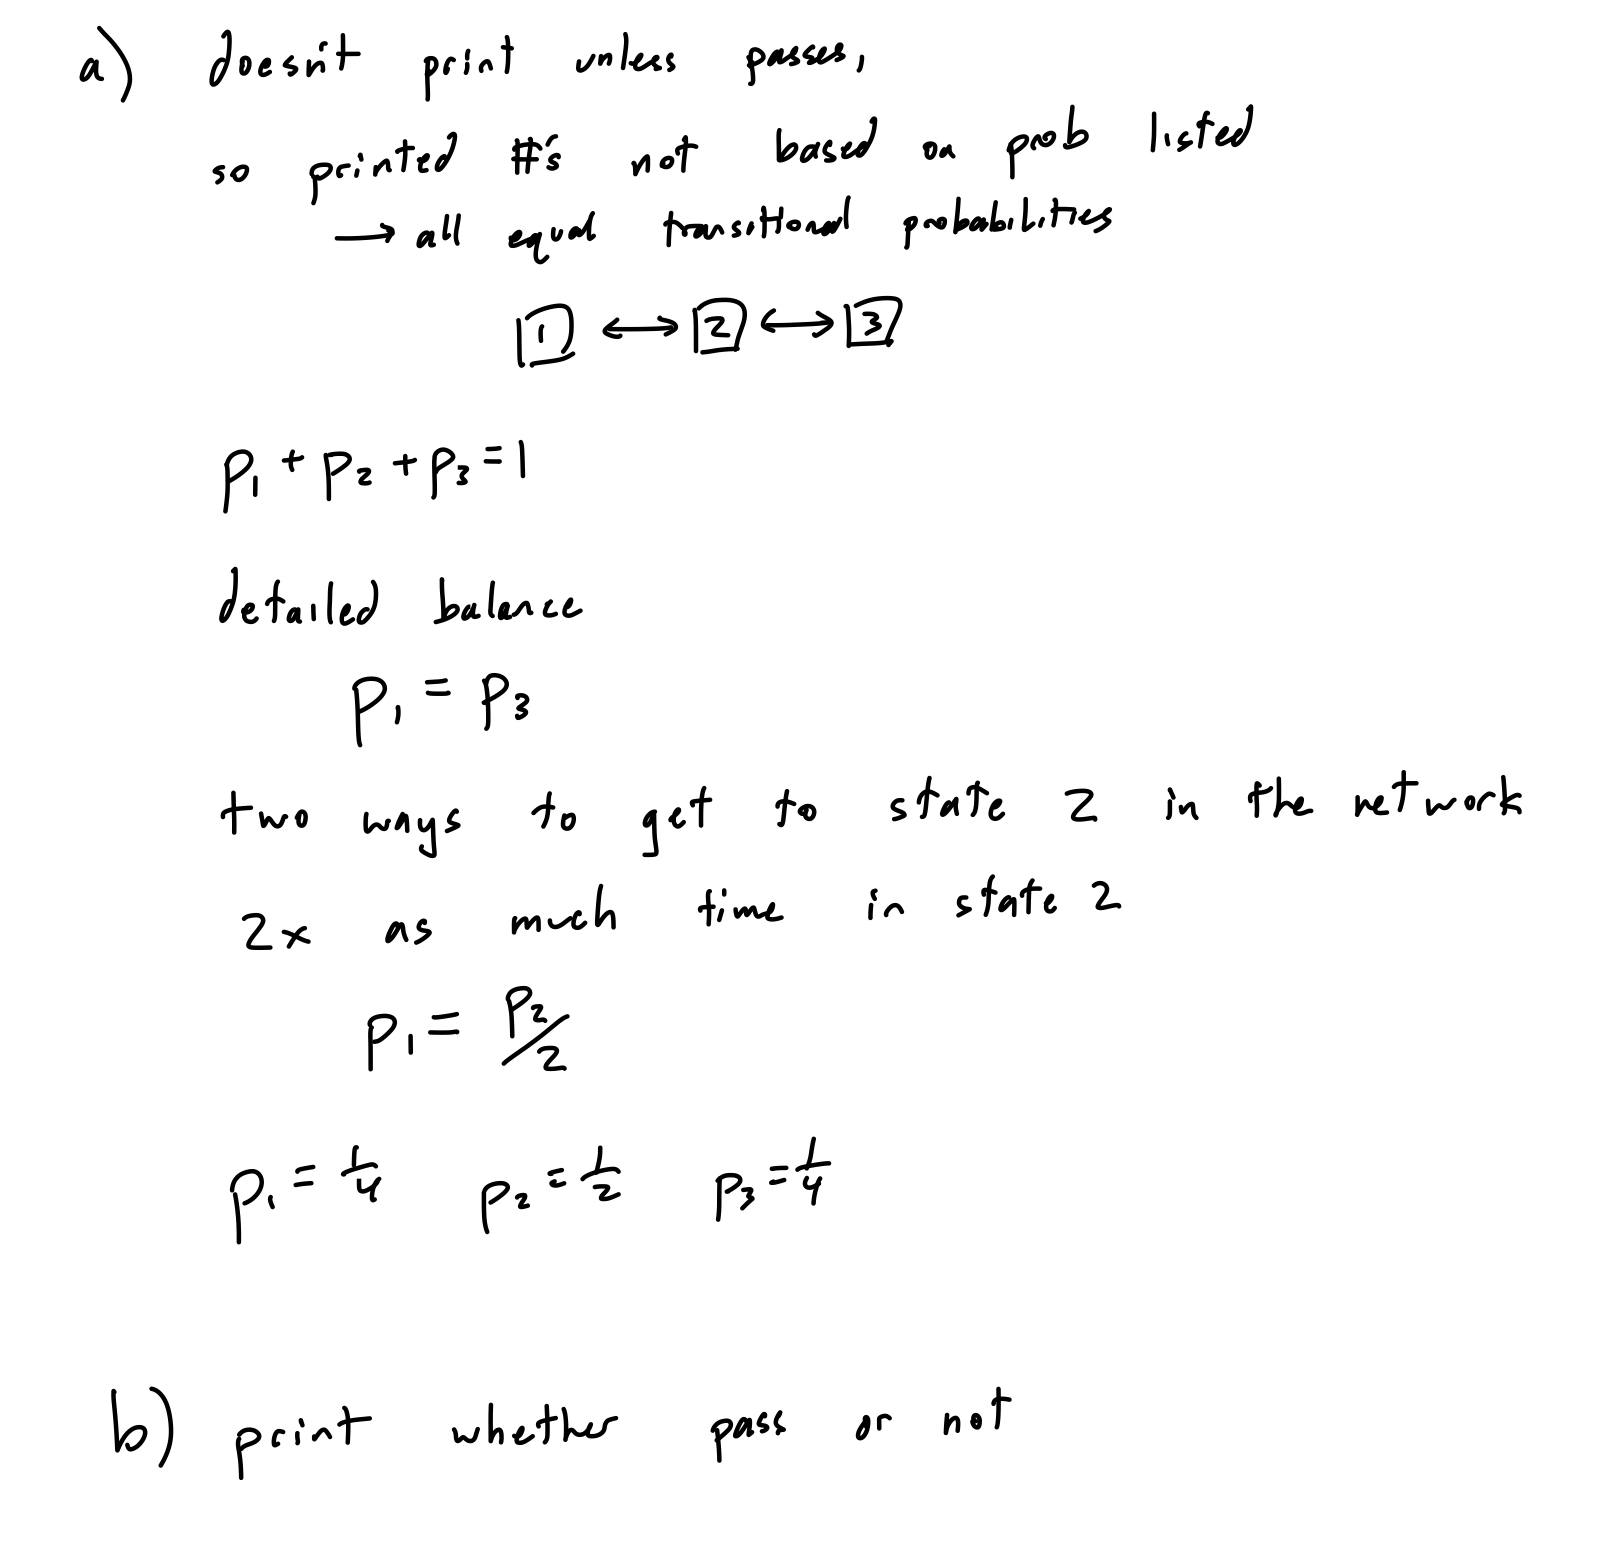 a) doesn't print unless passes,
so printed #'s not based on prob listed
→ all equal transitional probabilities
1 ↔ 2 ↔ 3
p₁ + p₂ + p₃ = 1
detailed balance
p₁ = p₃
two ways to get to state 2 in the network
2x as much time in state 2
p₁ = p₂/2
p₁ = 1/4 p₂ = 1/2 p₃ = 1/4
b) print whether pass or not